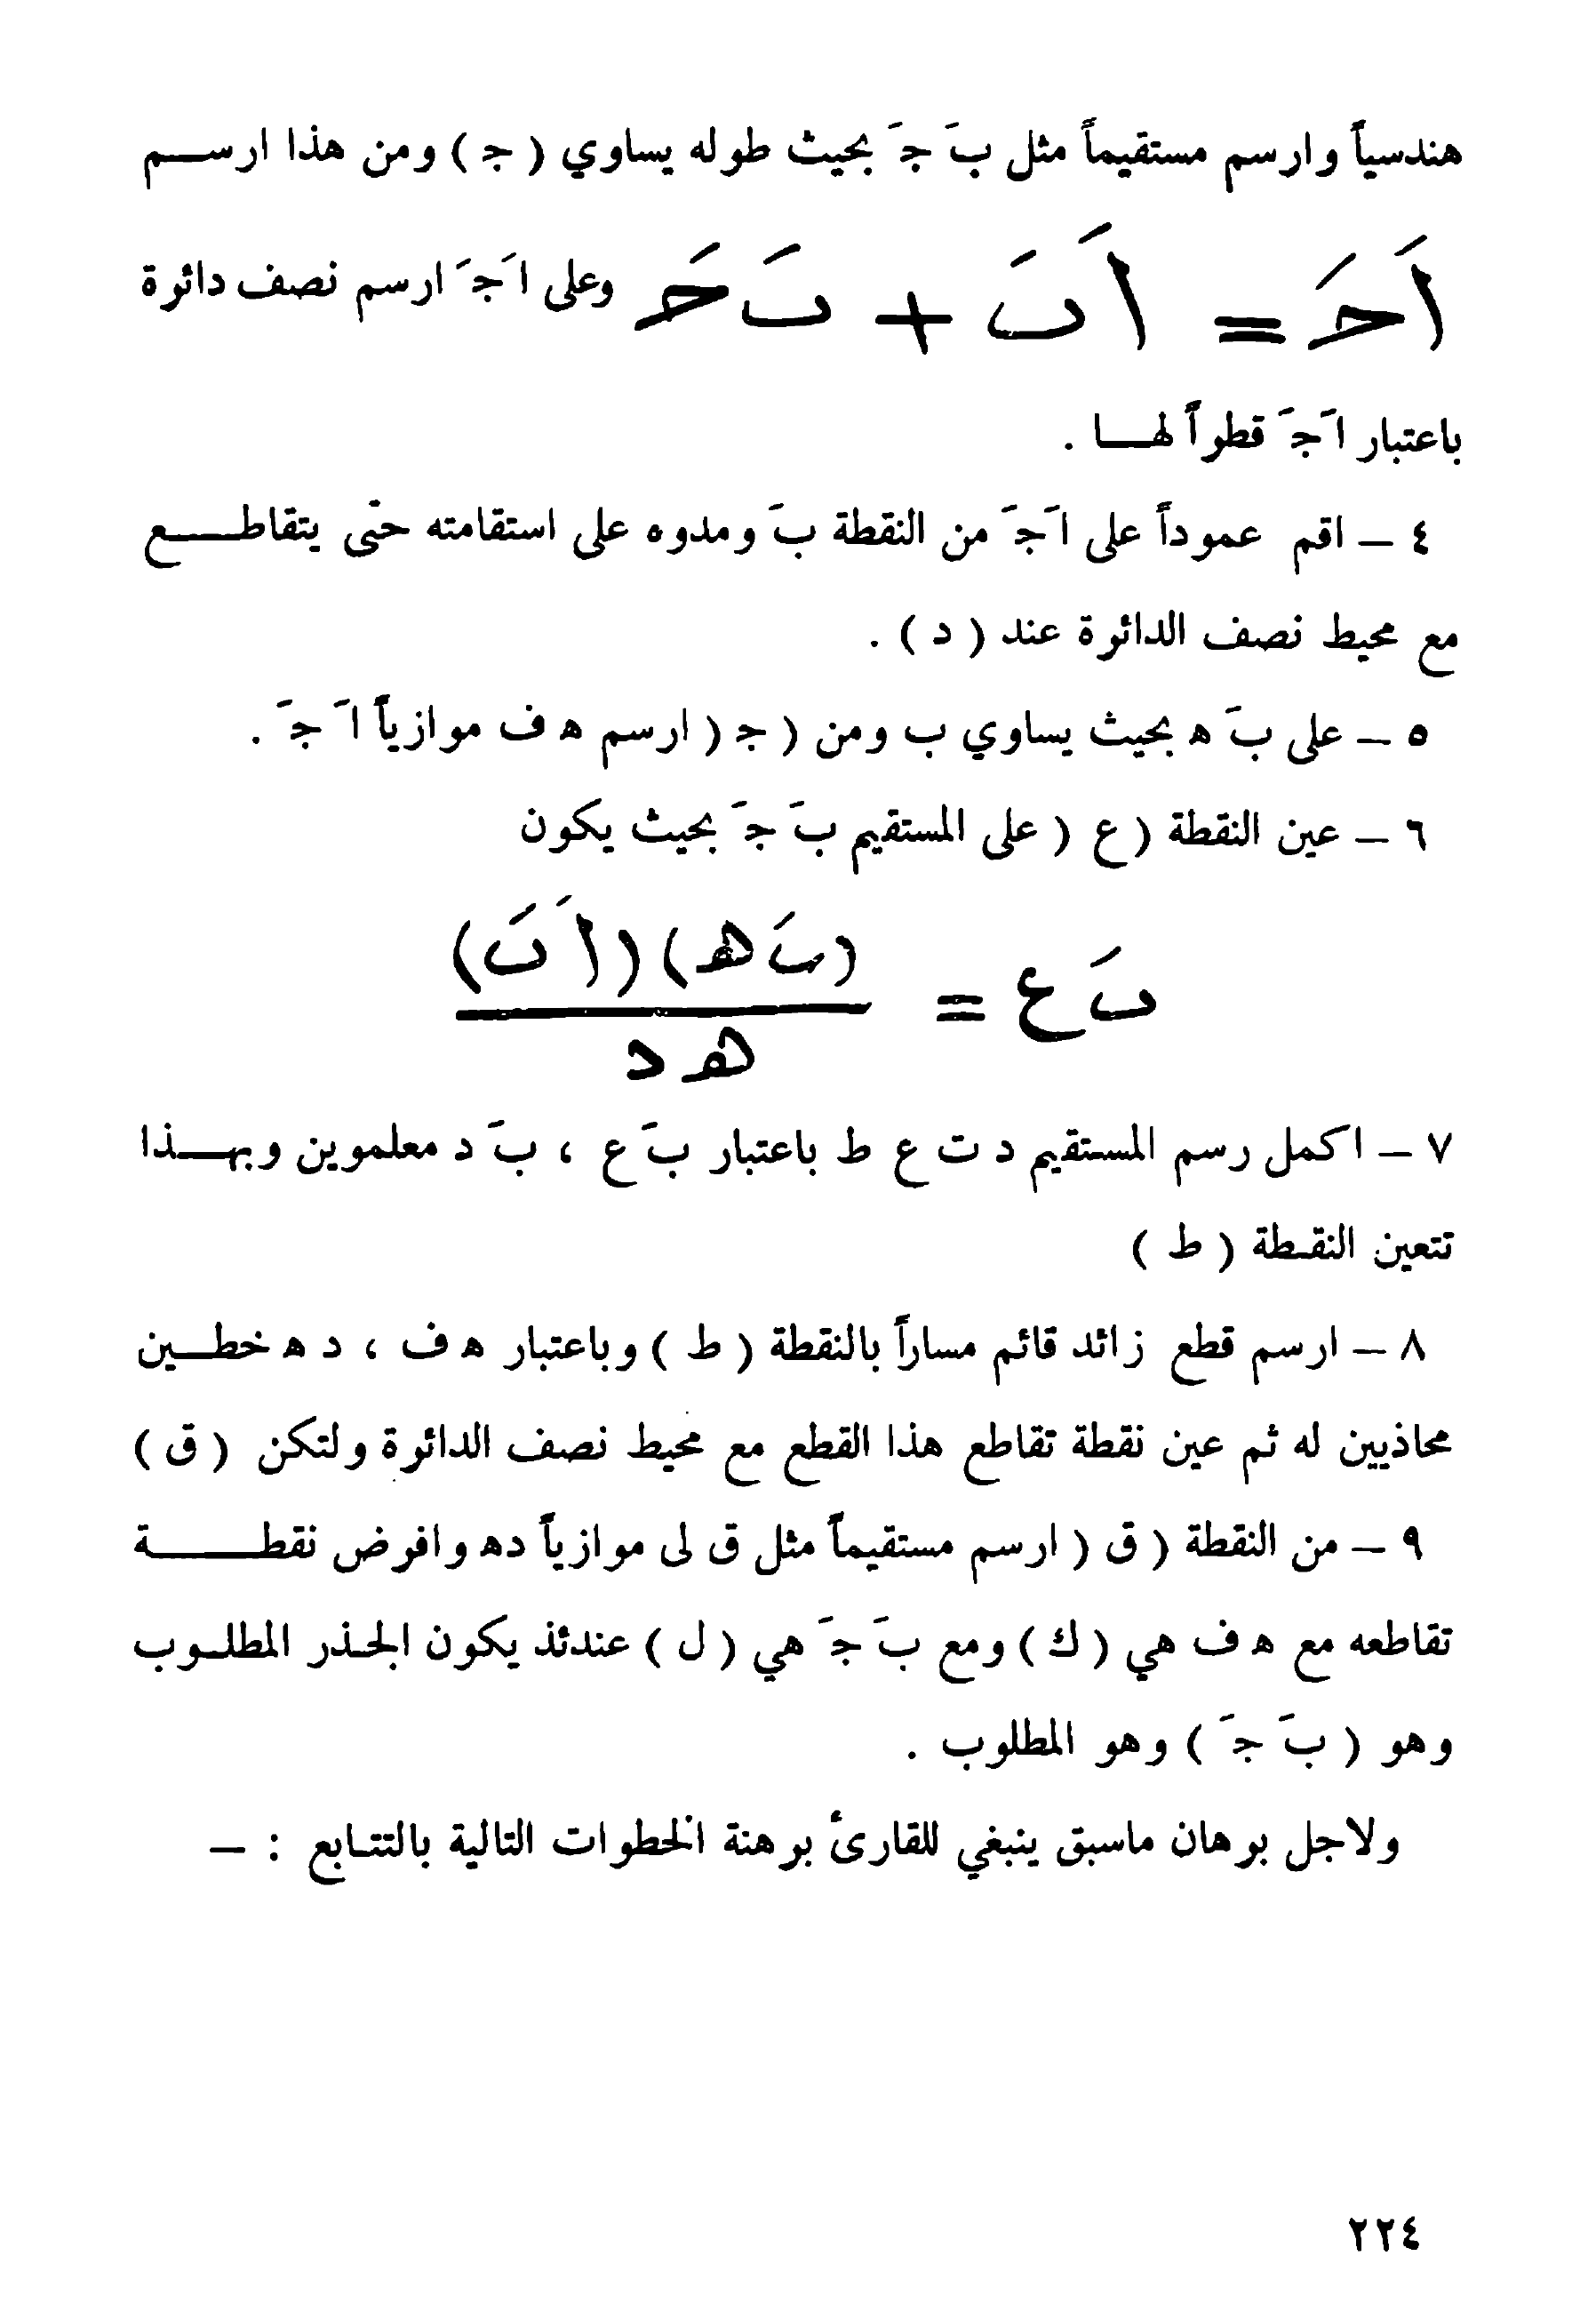 هندسياً وارسم مستقيماً مثل بَ جَـ بحيث طوله يساوي ( جـ ) ومن هذا ارســم
اَحَـ = اَبَ + بَ حَـ وعلى اَجَـ ارسم نصف دائرة
باعتبار اَجَـ قطراً لهــا .
٤ – اقم عموداً على اَجَـ من النقطة بَ ومدوه على استقامته حتى يتقاطــع
مع محيط نصف الدائرة عند ( د ) .
٥ – على بَ ه بحيث يساوي ب ومن ( جـ ( ارسم ه ف موازياً اَ جَـ .
٦ – عين النقطة (ع ( على المستقيم بَ جَـ بحيث يكون
بَ ع = (بَ هـ)(اَبَ)
هـ د
٧ – اكمل رسم المستقيم د ت ع ط باعتبار بَ ع ، بَ د معلموين وبهــذا
تتعين النقطة ( ط )
٨ – ارسم قطع زائد قائم مساراً بالنقطة ( ط ) وباعتبار ه ف ، د ه خطــين
محاذيين له ثم عين نقطة تقاطع هذا القطع مع محيط نصف الدائرة ولتكن ( ق )
٩ – من النقطة ( ق ( ارسم مستقيماً مثل ق لى موازياً ده وافرض نقطــة
تقاطعه مع ه ف هي ( ك ) ومع بَ جَـ هي ( ل ) عندئذ يكون الجذر المطلوب
وهو ( بَ جَـ ) وهو المطلوب .
ولاجل برهان ماسبق ينبغي للقارئ برهنة الخطوات التالية بالتتابع : –
٢٢٤